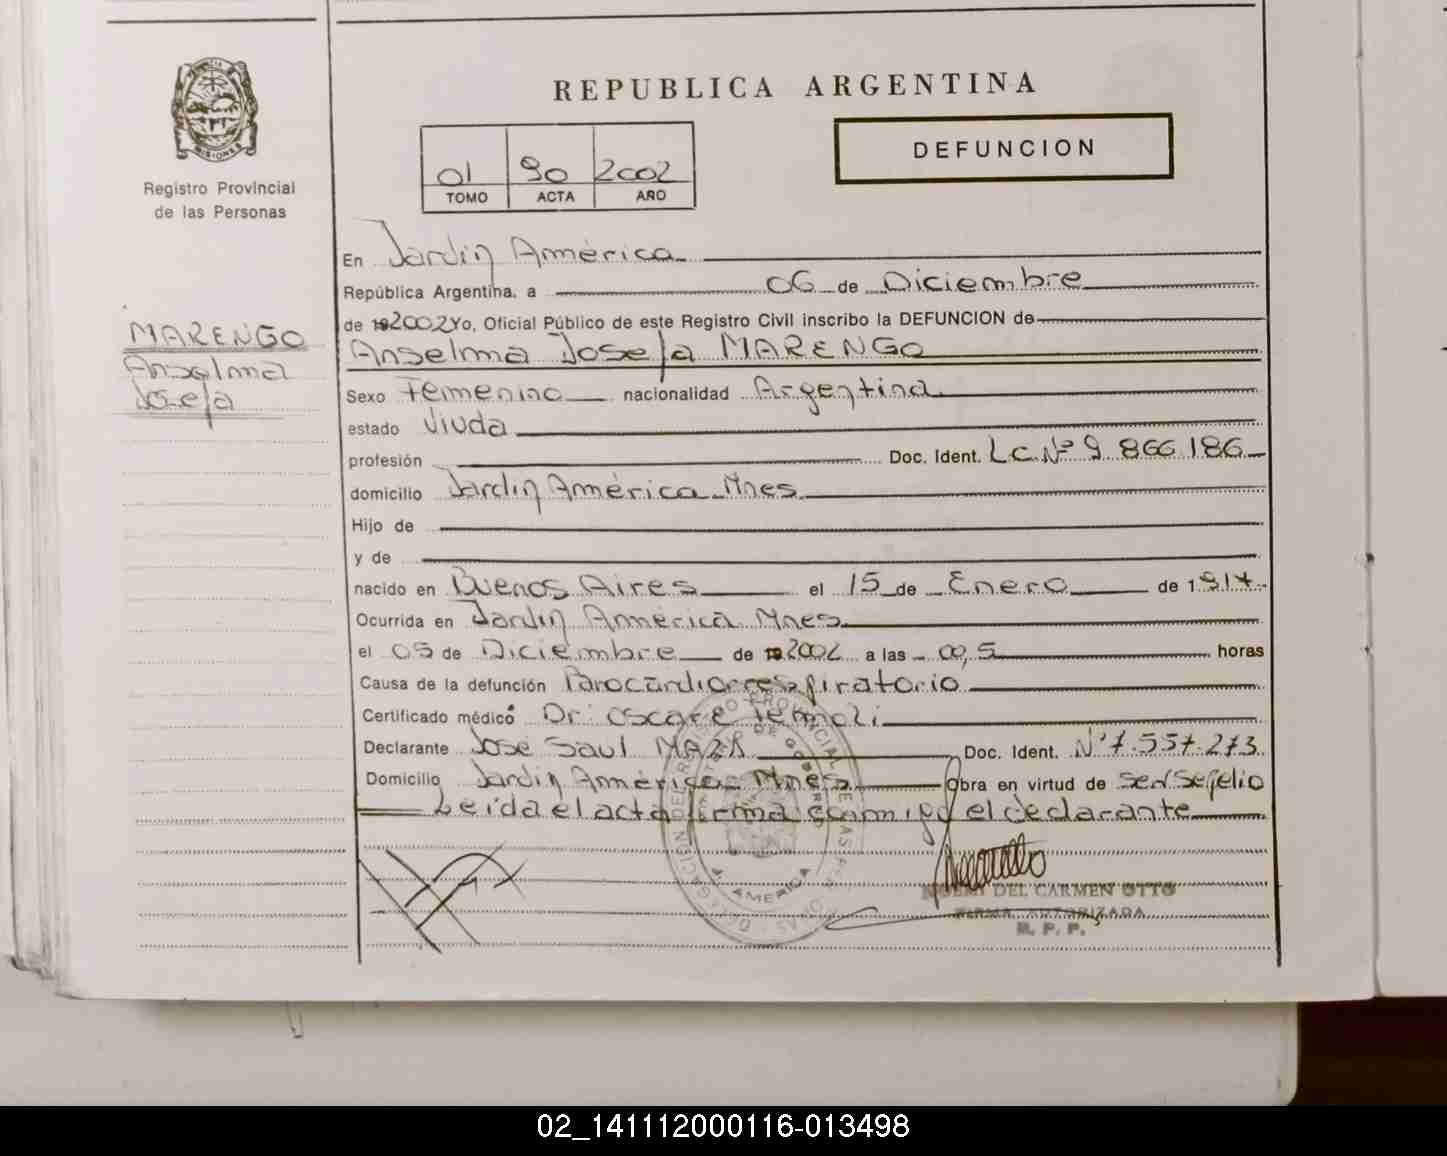 REPUBLICA ARGENTINA
MISIONES
Registro Provincial
de las Personas
01 90 2002
TOMO ACTA AÑO
DEFUNCION
MARENGO
Anselma
Josefa
En Jardín América
República Argentina, a 06 de Diciembre
de 2002 Yo, Oficial Público de este Registro Civil inscribo la DEFUNCION de
Anselma Josefa MARENGO
Sexo Femenino nacionalidad Argentina
estado Viuda
profesión Doc. Ident. L.C. Nº 9.866.186
domicilio Jardín América Mnes
Hijo de
y de
nacido en Buenos Aires el 15 de Enero de 1917
Ocurrida en Jardín América Mnes
el 05 de Diciembre de 2002 a las 00,5 horas
Causa de la defunción Parocardiorrespiratorio
Certificado médico Dr. Oscar E
Declarante José Saul Doc. Ident. Nº 7.557.273
Domicilio Jardín América Mnes Obra en virtud de ser Sepelio
Leida el acta firma conmigo el declarante
J. AMERICA
DEL CARMEN OTTO
FIRMA AUTORIZADA
R. P. P.
02_141112000116-013498